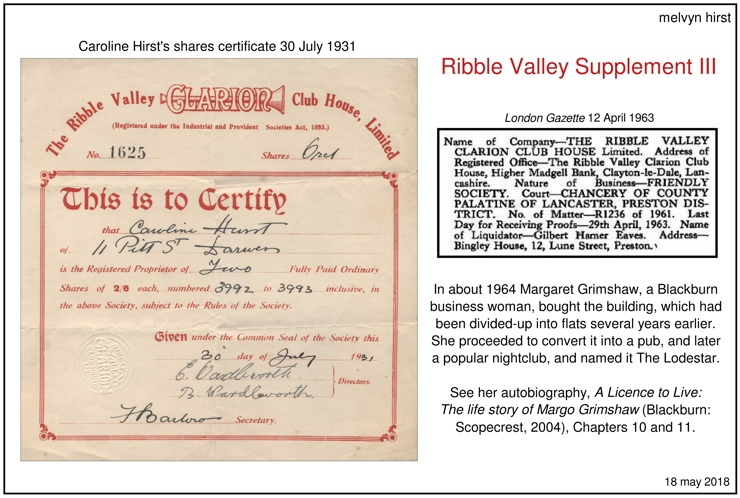 melvyn hirst
Caroline Hirst's shares certificate 30 July 1931
The Ribble Valley CLARION Club House, Limited
(Registered under the Industrial and Provident Societies Act, 1893.)
No. 1625 Shares Ord
This is to Certify
that Caroline Hurst
of 11 Pitt St Darwen
is the Registered Proprietor of Two Fully Paid Ordinary
Shares of 2/6 each, numbered 3992 to 3993 inclusive, in
the above Society, subject to the Rules of the Society.
Given under the Common Seal of the Society this
30 day of July 1931
Directors.
Secretary.
CLARION
Ribble Valley Supplement III
London Gazette 12 April 1963
Name of Company—THE RIBBLE VALLEY
CLARION CLUB HOUSE Limited. Address of
Registered Office—The Ribble Valley Clarion Club
House, Higher Madgell Bank, Clayton-le-Dale, Lan-
cashire. Nature of Business—FRIENDLY
SOCIETY. Court—CHANCERY OF COUNTY
PALATINE OF LANCASTER, PRESTON DIS-
TRICT. No. of Matter—R1236 of 1961. Last
Day for Receiving Proofs—29th April, 1963. Name
of Liquidator—Gilbert Hamer Eaves. Address—
Bingley House, 12, Lune Street, Preston.
In about 1964 Margaret Grimshaw, a Blackburn
business woman, bought the building, which had
been divided-up into flats several years earlier.
She proceeded to convert it into a pub, and later
a popular nightclub, and named it The Lodestar.
See her autobiography, A Licence to Live:
The life story of Margo Grimshaw (Blackburn:
Scopecrest, 2004), Chapters 10 and 11.
18 may 2018